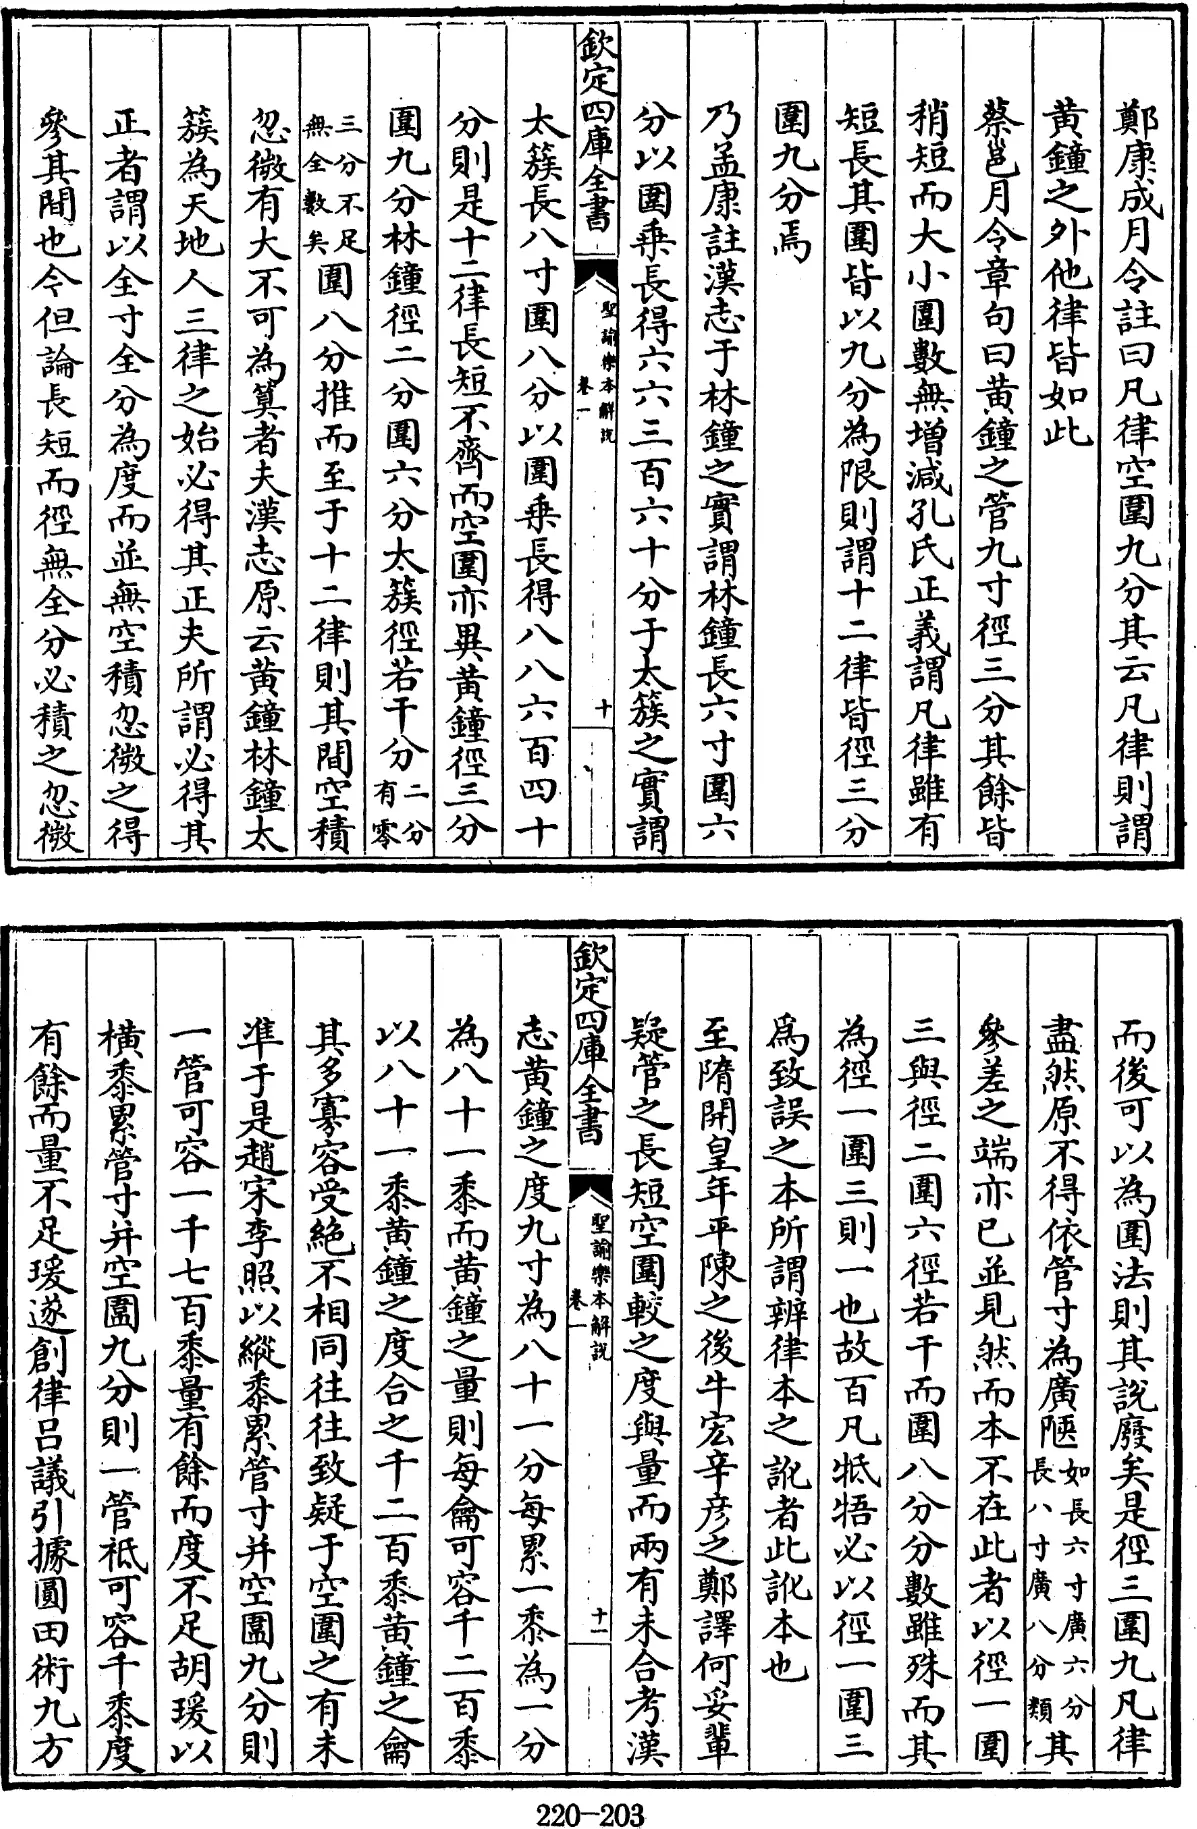 鄭康成月令註曰凡律空圍九分其云凡律則謂
黃鐘之外他律皆如此
蔡邕月令章句曰黃鐘之管九寸徑三分其餘皆
稍短而大小圍數無增減孔氏正義謂凡律雖有
短長其圍皆以九分為限則謂十二律皆徑三分
圍九分焉
乃孟康註漢志于林鐘之實謂林鐘長六寸圍六
分以圍乗長得六六三百六十分于太簇之實謂
欽定四庫全書
聖諭樂本解說
卷一
十
太簇長八寸圍八分以圍乗長得八八六百四十
分則是十二律長短不齊而空圍亦異黃鐘徑三分
圍九分林鐘徑二分圍六分太簇徑若干分二分有零
三分不足無全數矣圍八分推而至于十二律則其間空積
忽微有大不可為算者夫漢志原云黃鐘林鐘太
簇為天地人三律之始必得其正夫所謂必得其
正者謂以全寸全分為度而並無空積忽微之得
參其間也今但論長短而徑無全分必積之忽微
而後可以為圍法則其說廢矣是徑三圍九凡律
盡然原不得依管寸為廣陿如長六寸廣六分長八寸廣八分類其
參差之端亦已並見然而本不在此者以徑一圍
三與徑二圍六徑若干而圍八分分數雖殊而其
為徑一圍三則一也故百凡牴牾必以徑一圍三
為致誤之本所謂辨律本之訛者此訛本也
至隋開皇年平陳之後牛宏辛彥之鄭譯何妥輩
疑管之長短空圍較之度與量而兩有未合考漢
欽定四庫全書
聖諭樂本解說
卷一
十一
志黃鐘之度九寸為八十一分每累一黍為一分
為八十一黍而黃鐘之量則每龠可容千二百黍
以八十一黍黃鐘之度合之千二百黍黃鐘之龠
其多寡容受絶不相同往往致疑于空圍之有未
凖于是趙宋李照以縱黍累管寸并空圍九分則
一管可容一千七百黍量有餘而度不足胡瑗以
橫黍累管寸并空圍九分則一管祗可容千黍度
有餘而量不足瑗遂創律呂議引據圓田術九方
220-203